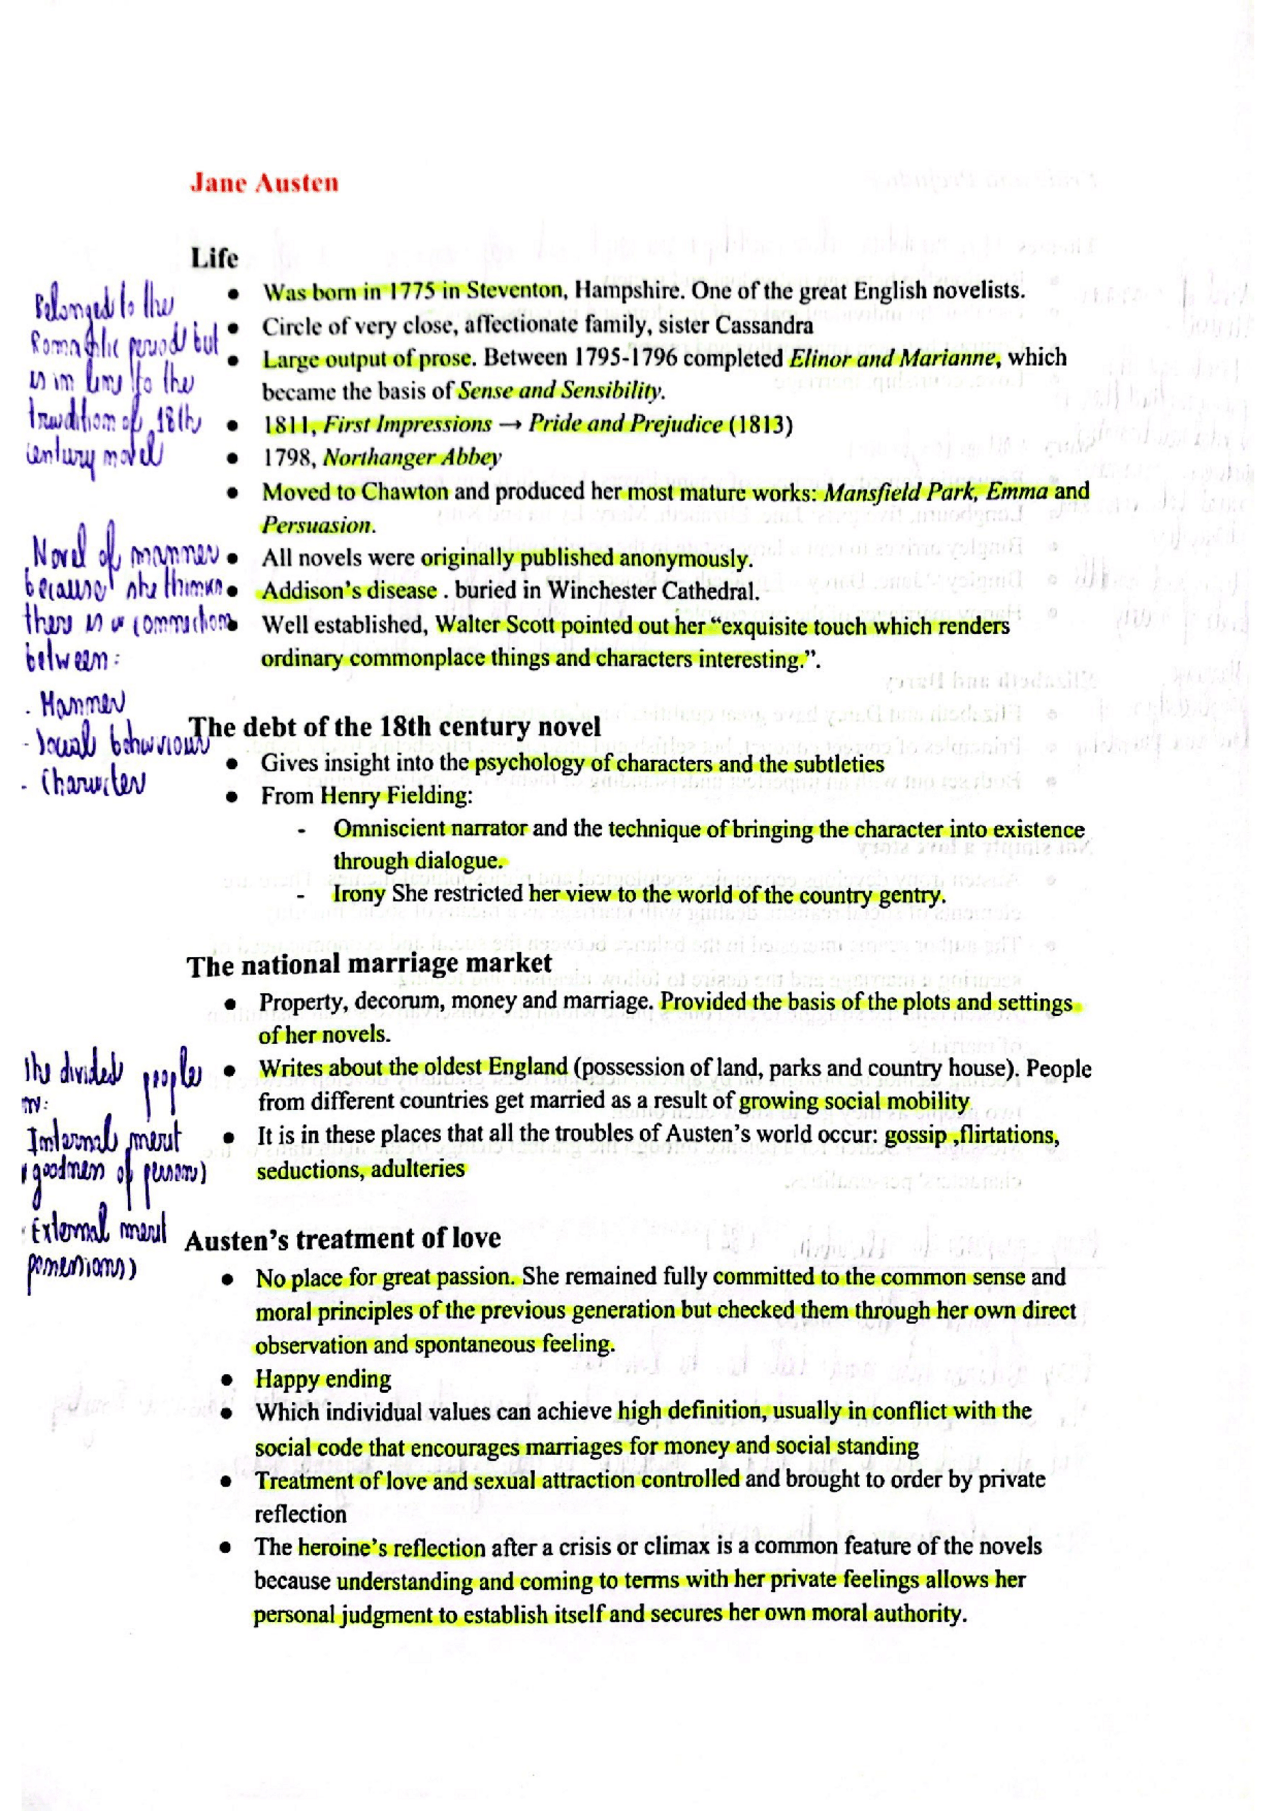 Jane Austen
Life
Belonged to the
Romantic period but
is in line to the
tradition of 18th
century novel
• Was born in 1775 in Steventon, Hampshire. One of the great English novelists.
• Circle of very close, affectionate family, sister Cassandra
• Large output of prose. Between 1795-1796 completed Elinor and Marianne, which
became the basis of Sense and Sensibility.
• 1811, First Impressions → Pride and Prejudice (1813)
• 1798, Northanger Abbey
• Moved to Chawton and produced her most mature works: Mansfield Park, Emma and
Persuasion.
Novel of manner
because she thinks
there is a connection
between:
. Manner
- Social behaviour
- Character
• All novels were originally published anonymously.
• Addison's disease . buried in Winchester Cathedral.
• Well established, Walter Scott pointed out her “exquisite touch which renders
ordinary commonplace things and characters interesting.”.
The debt of the 18th century novel
• Gives insight into the psychology of characters and the subtleties
• From Henry Fielding:
- Omniscient narrator and the technique of bringing the character into existence
through dialogue.
- Irony She restricted her view to the world of the country gentry.
The national marriage market
• Property, decorum, money and marriage. Provided the basis of the plots and settings
of her novels.
She divided people
in:
Internal merit
(goodness of person)
· External merit
possessions)
• Writes about the oldest England (possession of land, parks and country house). People
from different countries get married as a result of growing social mobility
• It is in these places that all the troubles of Austen's world occur: gossip ,flirtations,
seductions, adulteries
Austen's treatment of love
• No place for great passion. She remained fully committed to the common sense and
moral principles of the previous generation but checked them through her own direct
observation and spontaneous feeling.
• Happy ending
• Which individual values can achieve high definition, usually in conflict with the
social code that encourages marriages for money and social standing
• Treatment of love and sexual attraction controlled and brought to order by private
reflection
• The heroine's reflection after a crisis or climax is a common feature of the novels
because understanding and coming to terms with her private feelings allows her
personal judgment to establish itself and secures her own moral authority.